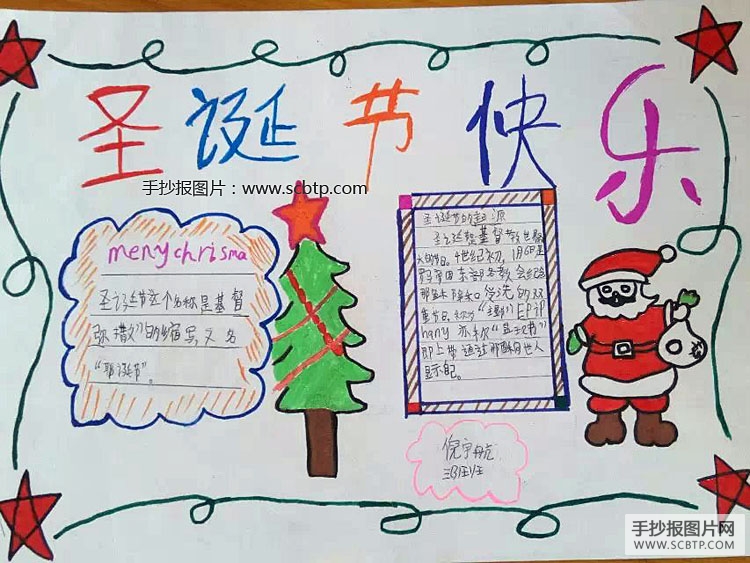 圣诞节快乐
手抄报图片：www.scbtp.com
menychrisma
圣诞节这个名称是基督
弥撒的缩写又名
“耶诞节”。
圣诞节的起源
圣诞是基督教世界
4世纪初，1月6日是
罗马帝国东部各教会纪念
耶稣降生和受洗的双
重节日，称为“主显”Epip
hany亦称“显现节”
即上帝通过耶稣向世人
显示自己。
倪宇航
手抄报图片网
WWW.SCBTP.COM